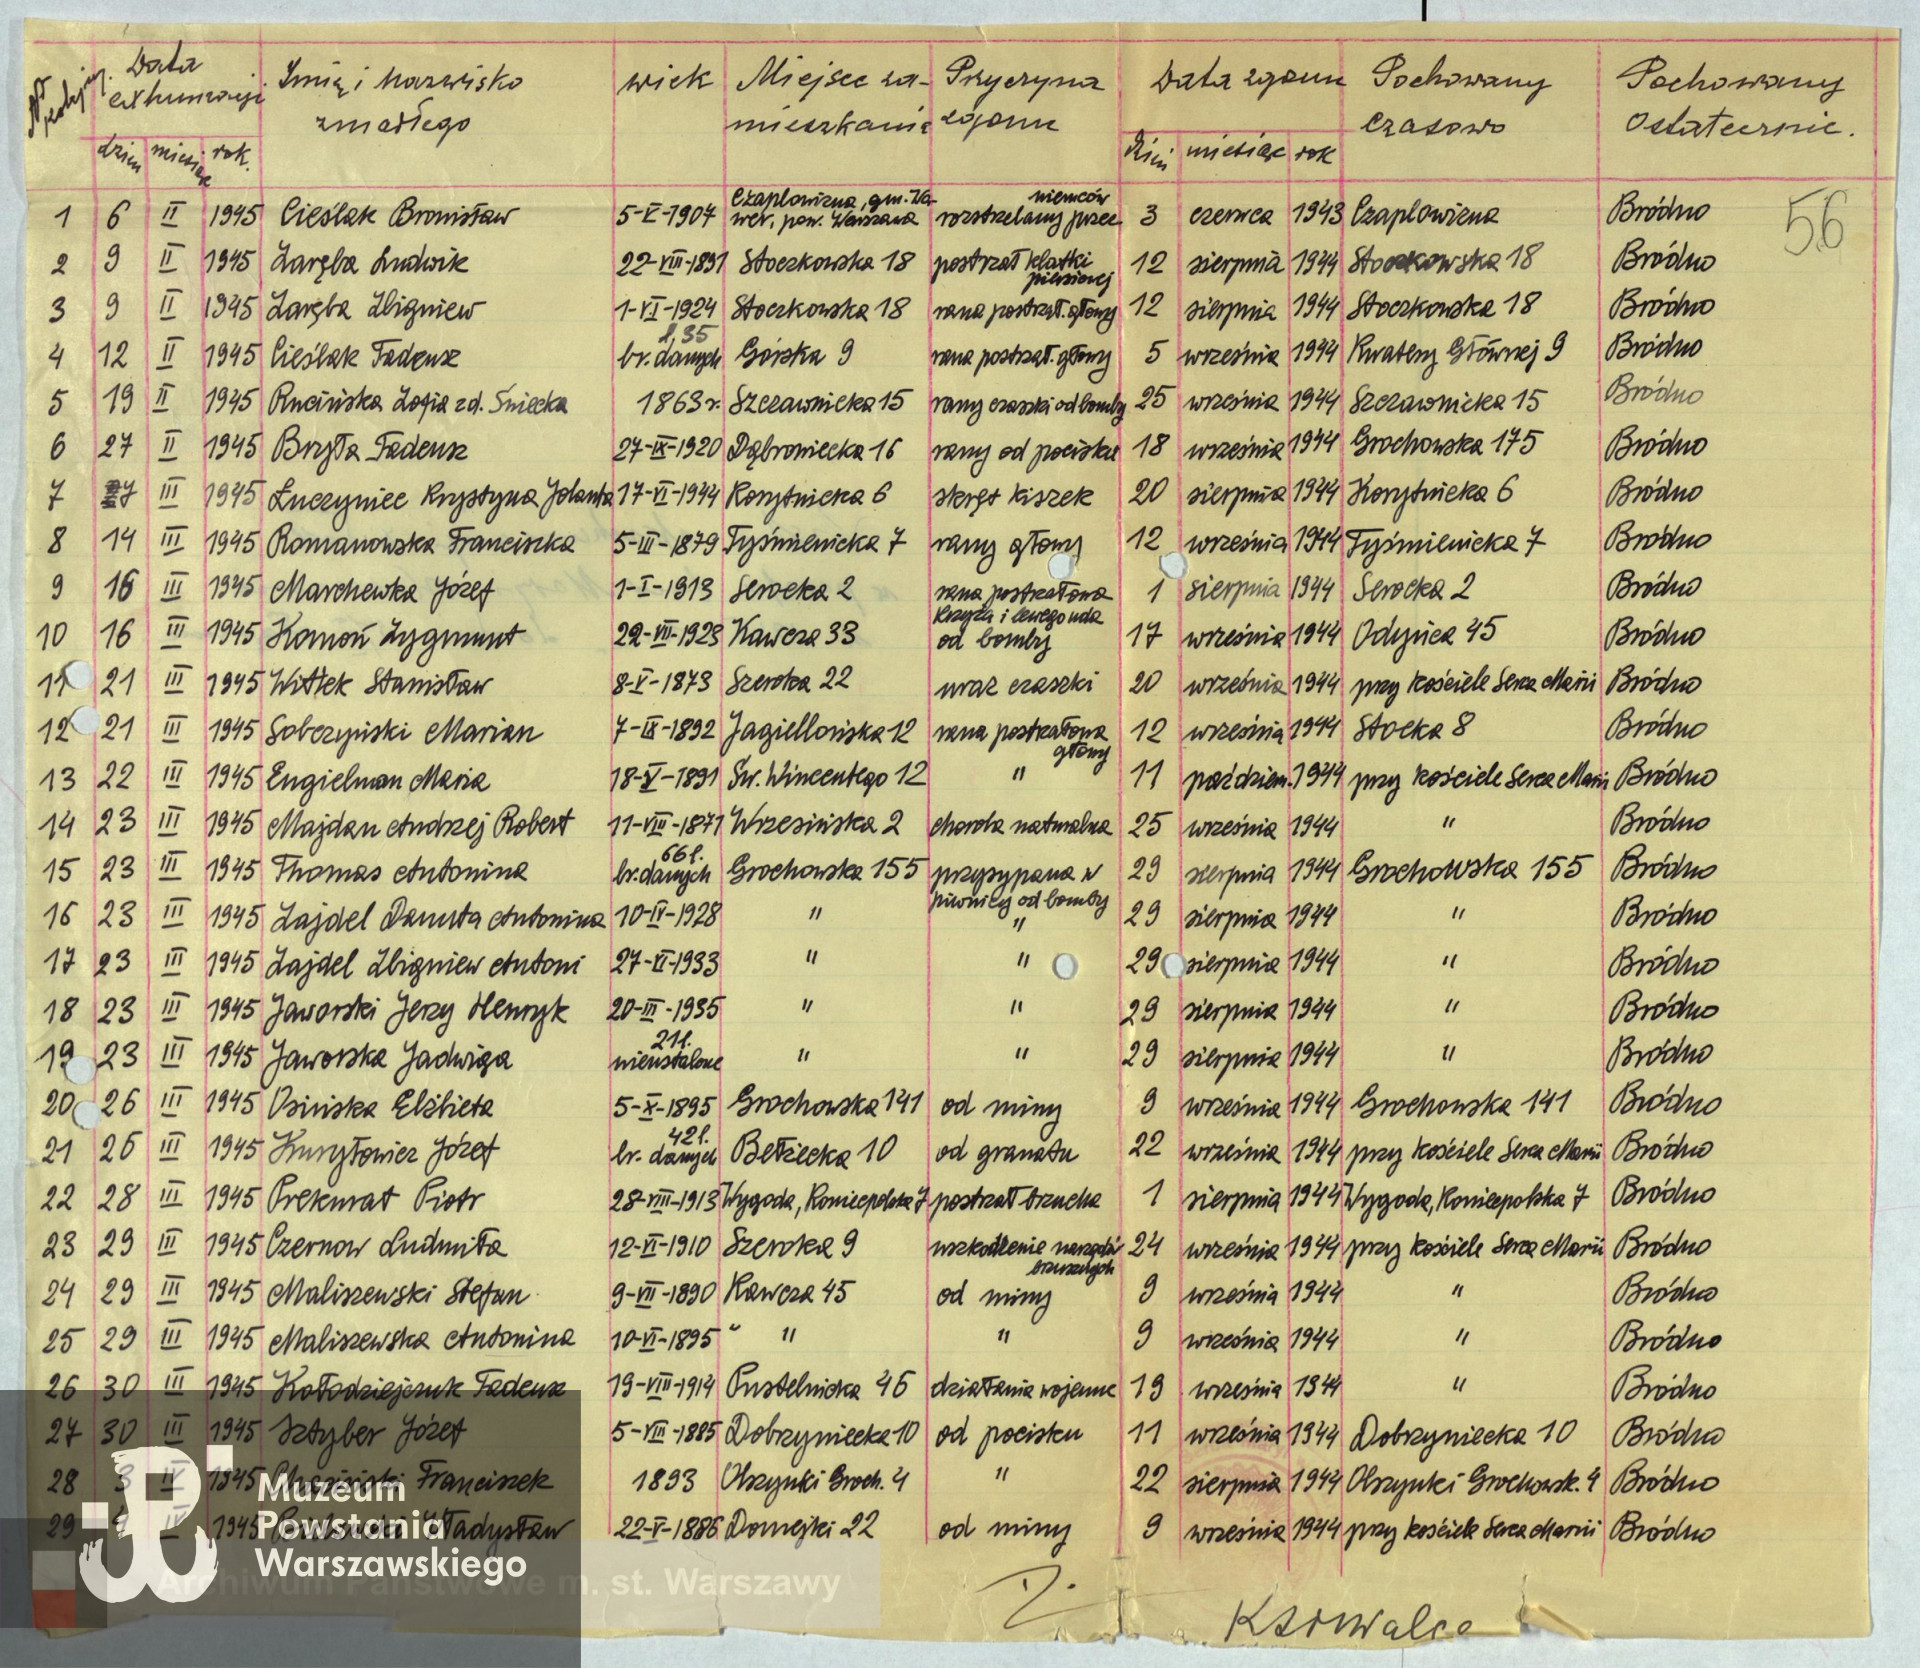 Data exhumacji Imię i nazwisko zmarłego wiek Miejsce zamieszkania Przyczyna zgonu Data zgonu Pochowany czasowo Pochowany ostatecznie.
dzień miesiąc rok. dzień miesiąc rok
56
1 6 II 1945 Cieślak Bronisław 5-V-1907 Czaplowizna, gm. Wawer, pow. Warszawa rozstrzelany przez niemców 3 czerwca 1943 Czaplowizna Bródno
2 9 II 1945 Zaręba Ludwik 22-VIII-1891 Stoczkowska 18 postrzał klatki piersiowej 12 sierpnia 1944 Stoczkowska 18 Bródno
3 9 II 1945 Zaręba Zbigniew 1-VI-1924 Stoczkowska 18 rana postrzał. głowy 12 sierpnia 1944 Stoczkowska 18 Bródno
4 12 II 1945 Cieślak Tadeusz l. 35 br. danych Górska 9 rana postrzał. głowy 5 września 1944 Kwatery Głównej 9 Bródno
5 19 II 1945 Rucińska Zofia zd. Śniecka 1863 r. Szczawnicka 15 rany czaszki od bomby 25 września 1944 Szczawnicka 15 Bródno
6 27 II 1945 Bryła Tadeusz 27-IX-1920 Dąbrowiecka 16 rany od pocisku 18 września 1944 Grochowska 175 Bródno
7 7 III 1945 Łuczyniec Krystyna Jolanta 17-VI-1944 Korytnicka 6 skręt kiszek 20 sierpnia 1944 Korytnicka 6 Bródno
8 14 III 1945 Romanowska Franciszka 5-III-1879 Tyśmienicka 7 rany głowy 12 września 1944 Tyśmienicka 7 Bródno
9 16 III 1945 Marchewka Józef 1-I-1913 Serocka 2 rana postrzałowa krzyża i lewego uda 1 sierpnia 1944 Serocka 2 Bródno
10 16 III 1945 Komoń Zygmunt 22-VII-1923 Kawcza 33 od bomby 17 września 1944 Odyńca 45 Bródno
11 21 III 1945 Wittek Stanisław 8-V-1873 Szeroka 22 uraz czaszki 20 września 1944 przy kościele Serca Marii Bródno
12 21 III 1945 Sobczyński Marian 7-IX-1892 Jagiellońska 12 rana postrzałowa głowy 12 września 1944 Stocka 8 Bródno
13 22 III 1945 Engielman Maria 18-V-1891 Św. Wincentego 12 " 11 paździer. 1944 przy kościele Serca Marii Bródno
14 23 III 1945 Majdan Andrzej Robert 11-VIII-1871 Wrzesińska 2 choroba naturalna 25 września 1944 " Bródno
15 23 III 1945 Thomas Antonina 66 l. br. danych Grochowska 155 przysypana w piwnicy od bomby 29 sierpnia 1944 Grochowska 155 Bródno
16 23 III 1945 Zajdel Danuta Antonina 10-IV-1928 " " 29 sierpnia 1944 " Bródno
17 23 III 1945 Zajdel Zbigniew Antoni 27-VI-1933 " " 29 sierpnia 1944 " Bródno
18 23 III 1945 Jaworski Jerzy Henryk 20-III-1935 " " 29 sierpnia 1944 " Bródno
19 23 III 1945 Jaworska Jadwiga 21 l. nieustalone " " 29 sierpnia 1944 " Bródno
20 26 III 1945 Osińska Elżbieta 5-X-1895 Grochowska 141 od miny 9 września 1944 Grochowska 141 Bródno
21 26 III 1945 Kuryłowicz Józef 42 l. br. danych Bełżecka 10 od granatu 22 września 1944 przy kościele Serca Marii Bródno
22 28 III 1945 Prekurat Piotr 28-VIII-1913 Wygoda, Koniecpolska 7 postrzał brzucha 1 sierpnia 1944 Wygoda, Koniecpolska 7 Bródno
23 29 III 1945 Czernow Ludmiła 12-VI-1910 Szeroka 9 uszkodzenie narządów brzusznych 24 września 1944 przy kościele Serca Marii Bródno
24 29 III 1945 Maliszewski Stefan 9-VII-1890 Kawcza 45 od miny 9 września 1944 " Bródno
25 29 III 1945 Maliszewska Antonina 10-VI-1895 " " " 9 września 1944 " Bródno
26 30 III 1945 Kołodziejczuk Tadeusz 19-VIII-1914 Pustelnicka 46 działania wojenne 19 września 1944 " Bródno
27 30 III 1945 Sztyber Józef 5-VIII-1885 Dobrzyniecka 10 od pocisku 11 września 1944 Dobrzyniecka 10 Bródno
28 3 IV 1945 Franciszek 1893 Olszynki Groch. 4 " 22 sierpnia 1944 Olszynki Grochowsk. 4 Bródno
29 1945 Władysław 22-V-1886 Domejki 22 od miny 9 września 1944 przy kościele Serca Marii Bródno
Muzeum
Powstania
Warszawskiego
Archiwum Państwowe m. st. Warszawy